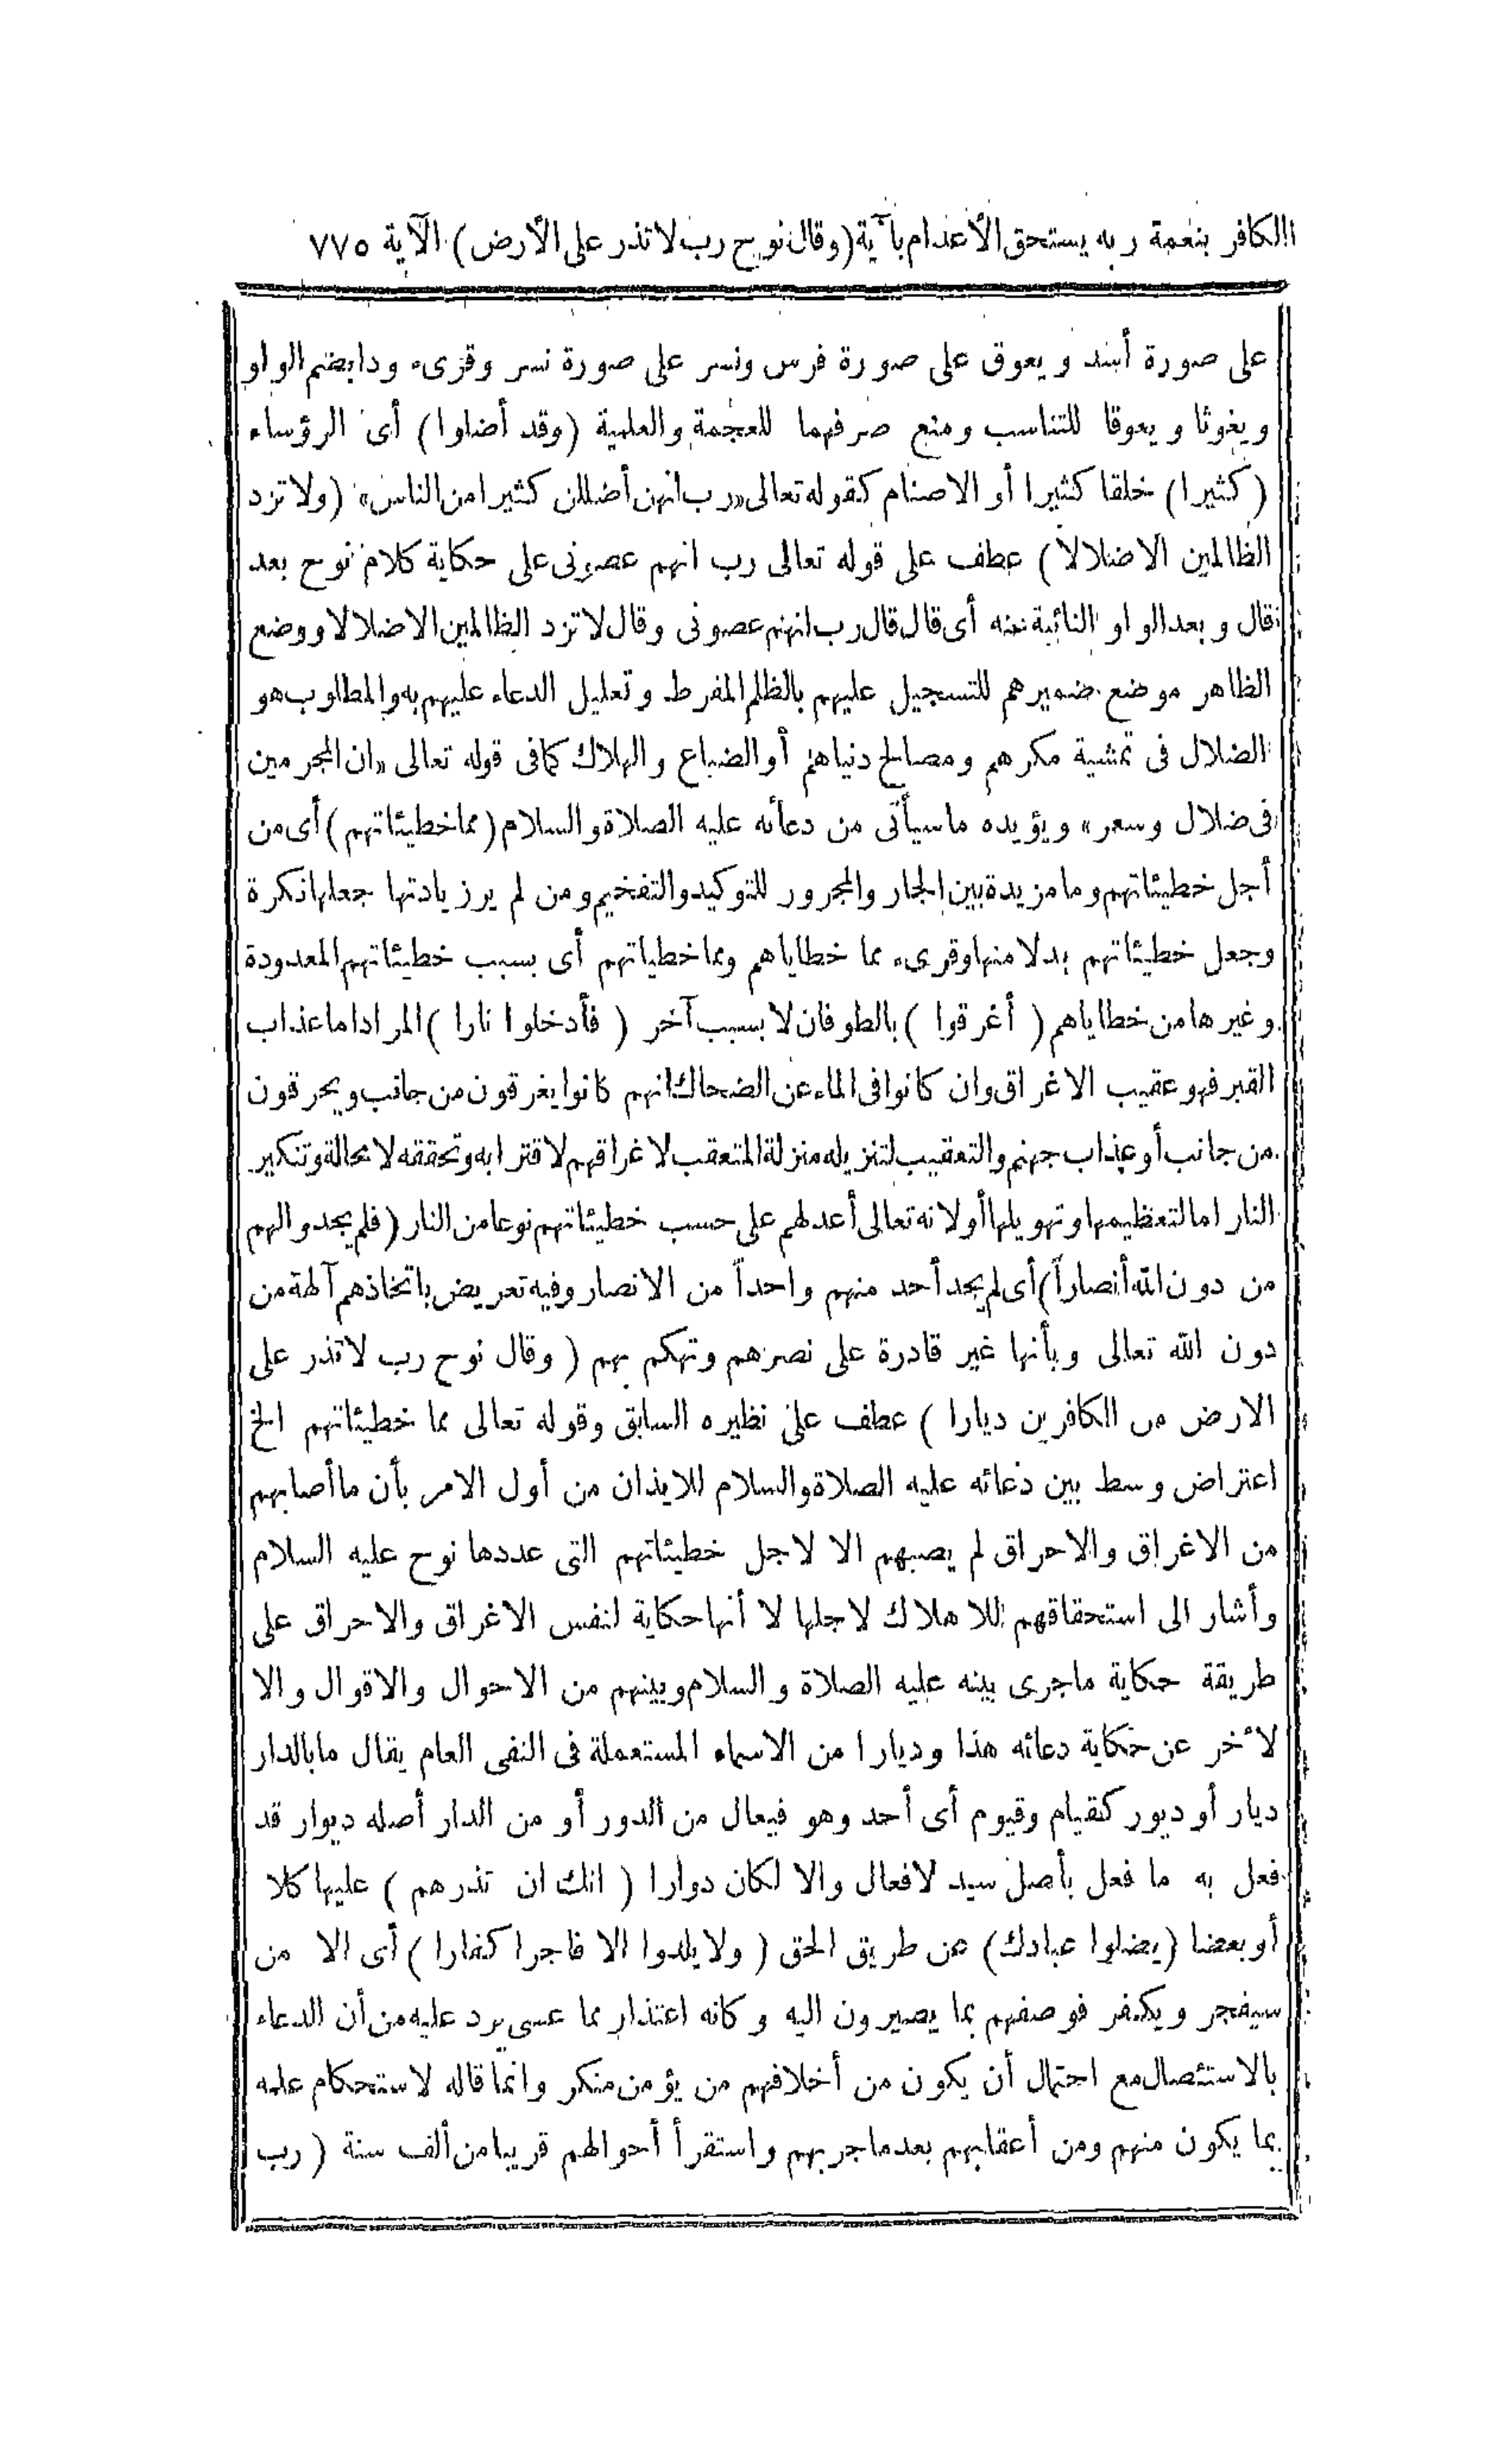 الكافر بنعمة ربه يستحق الأعدام بآية (وقال نوح رب لا تذر على الأرض) الآية ٧٧٥
على صورة أسد ويعوق على صورة فرس ونسر على صورة نسر وقرىء ودا بضم الواو
ويغوثا ويعوقا للتناسب ومنع صرفهما للعجمة والعلمية (وقد أضلوا) أى الرؤساء
(كثيرا) خلقا كثيرا أو الاصنام كقوله تعالى «رب انهن أضللن كثيرا من الناس» (ولا تزد
الظالمين الا ضلالا) عطف على قوله تعالى رب انهم عصونى على حكاية كلام نوح بعد
قال وبعد الواو النائبة عنه أى قال قال رب انهم عصونى وقال لا تزد الظالمين الا ضلالا ووضع
الظاهر موضع ضميرهم للتسجيل عليهم بالظلم المفرط وتعليل الدعاء عليهم به والمطلوب هو
الضلال فى تمشية مكرهم ومصالح دنياهم أو الضياع والهلاك كما فى قوله تعالى «ان المجرمين
فى ضلال وسعر» ويؤيده ما سيأتى من دعائه عليه الصلاة والسلام (مما خطيئاتهم) أى من
أجل خطيئاتهم وما مزيدة بين الجار والمجرور للتوكيد والتفخيم ومن لم ير زيادتها جعلها نكرة
وجعل خطيئاتهم بدلا منها وقرىء مما خطاياهم ومما خطياتهم أى بسبب خطيئاتهم المعدودة
وغيرها من خطاياهم (أغرقوا) بالطوفان لا بسبب آخر (فأدخلوا نارا) المراد اما عذاب
القبر فهو عقيب الاغراق وان كانوا فى الماء عن الضحاك انهم كانوا يغرقون من جانب ويحرقون
من جانب أو عذاب جهنم والتعقيب لتنزيله منزلة المتعقب لاغراقهم لاقترابه وتحققه لا محالة وتنكير
النار اما لتعظيمها وتهويلها أو لانه تعالى أعد لهم على حسب خطيئاتهم نوعا من النار (فلم يجدوا لهم
من دون الله أنصاراً) أى لم يجد أحد منهم واحداً من الانصار وفيه تعريض باتخاذهم آلهة من
دون الله تعالى وبأنها غير قادرة على نصرهم وتهكم بهم (وقال نوح رب لا تذر على
الارض من الكافرين ديارا) عطف على نظيره السابق وقوله تعالى مما خطيئاتهم الخ
اعتراض وسط بين دعائه عليه الصلاة والسلام للايذان من أول الامر بأن ما أصابهم
من الاغراق والاحراق لم يصبهم الا لاجل خطيئاتهم التى عددها نوح عليه السلام
وأشار الى استحقاقهم للاهلاك لاجلها لا أنها حكاية لنفس الاغراق والاحراق على
طريقة حكاية ما جرى بينه عليه الصلاة والسلام وبينهم من الاحوال والاقوال والا
لأخر عن حكاية دعائه هذا وديارا من الاسماء المستعملة فى النفى العام يقال ما بالدار
ديار أو ديور كقيام وقيوم أى أحد وهو فيعال من الدور أو من الدار أصله ديوار قد
فعل به ما فعل بأصل سيد لا فعال والا لكان دوارا (انك ان تذرهم) عليها كلا
أو بعضا (يضلوا عبادك) عن طريق الحق (ولا يلدوا الا فاجرا كفارا) أى الا من
سيفجر ويكفر فوصفهم بما يصيرون اليه وكانه اعتذار مما عسى يرد عليه من أن الدعاء
بالاستئصال مع احتمال أن يكون من أخلافهم من يؤمن منكر وانما قاله لاستحكام علمه
بما يكون منهم ومن أعقابهم بعد ما جربهم واستقرأ أحوالهم قريبا من ألف سنة (رب